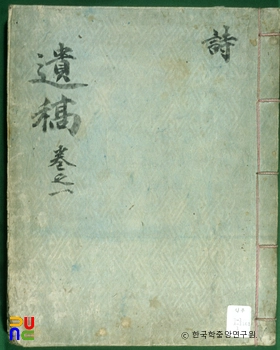 詩
遺稿
卷之一
© 한국학중앙연구원